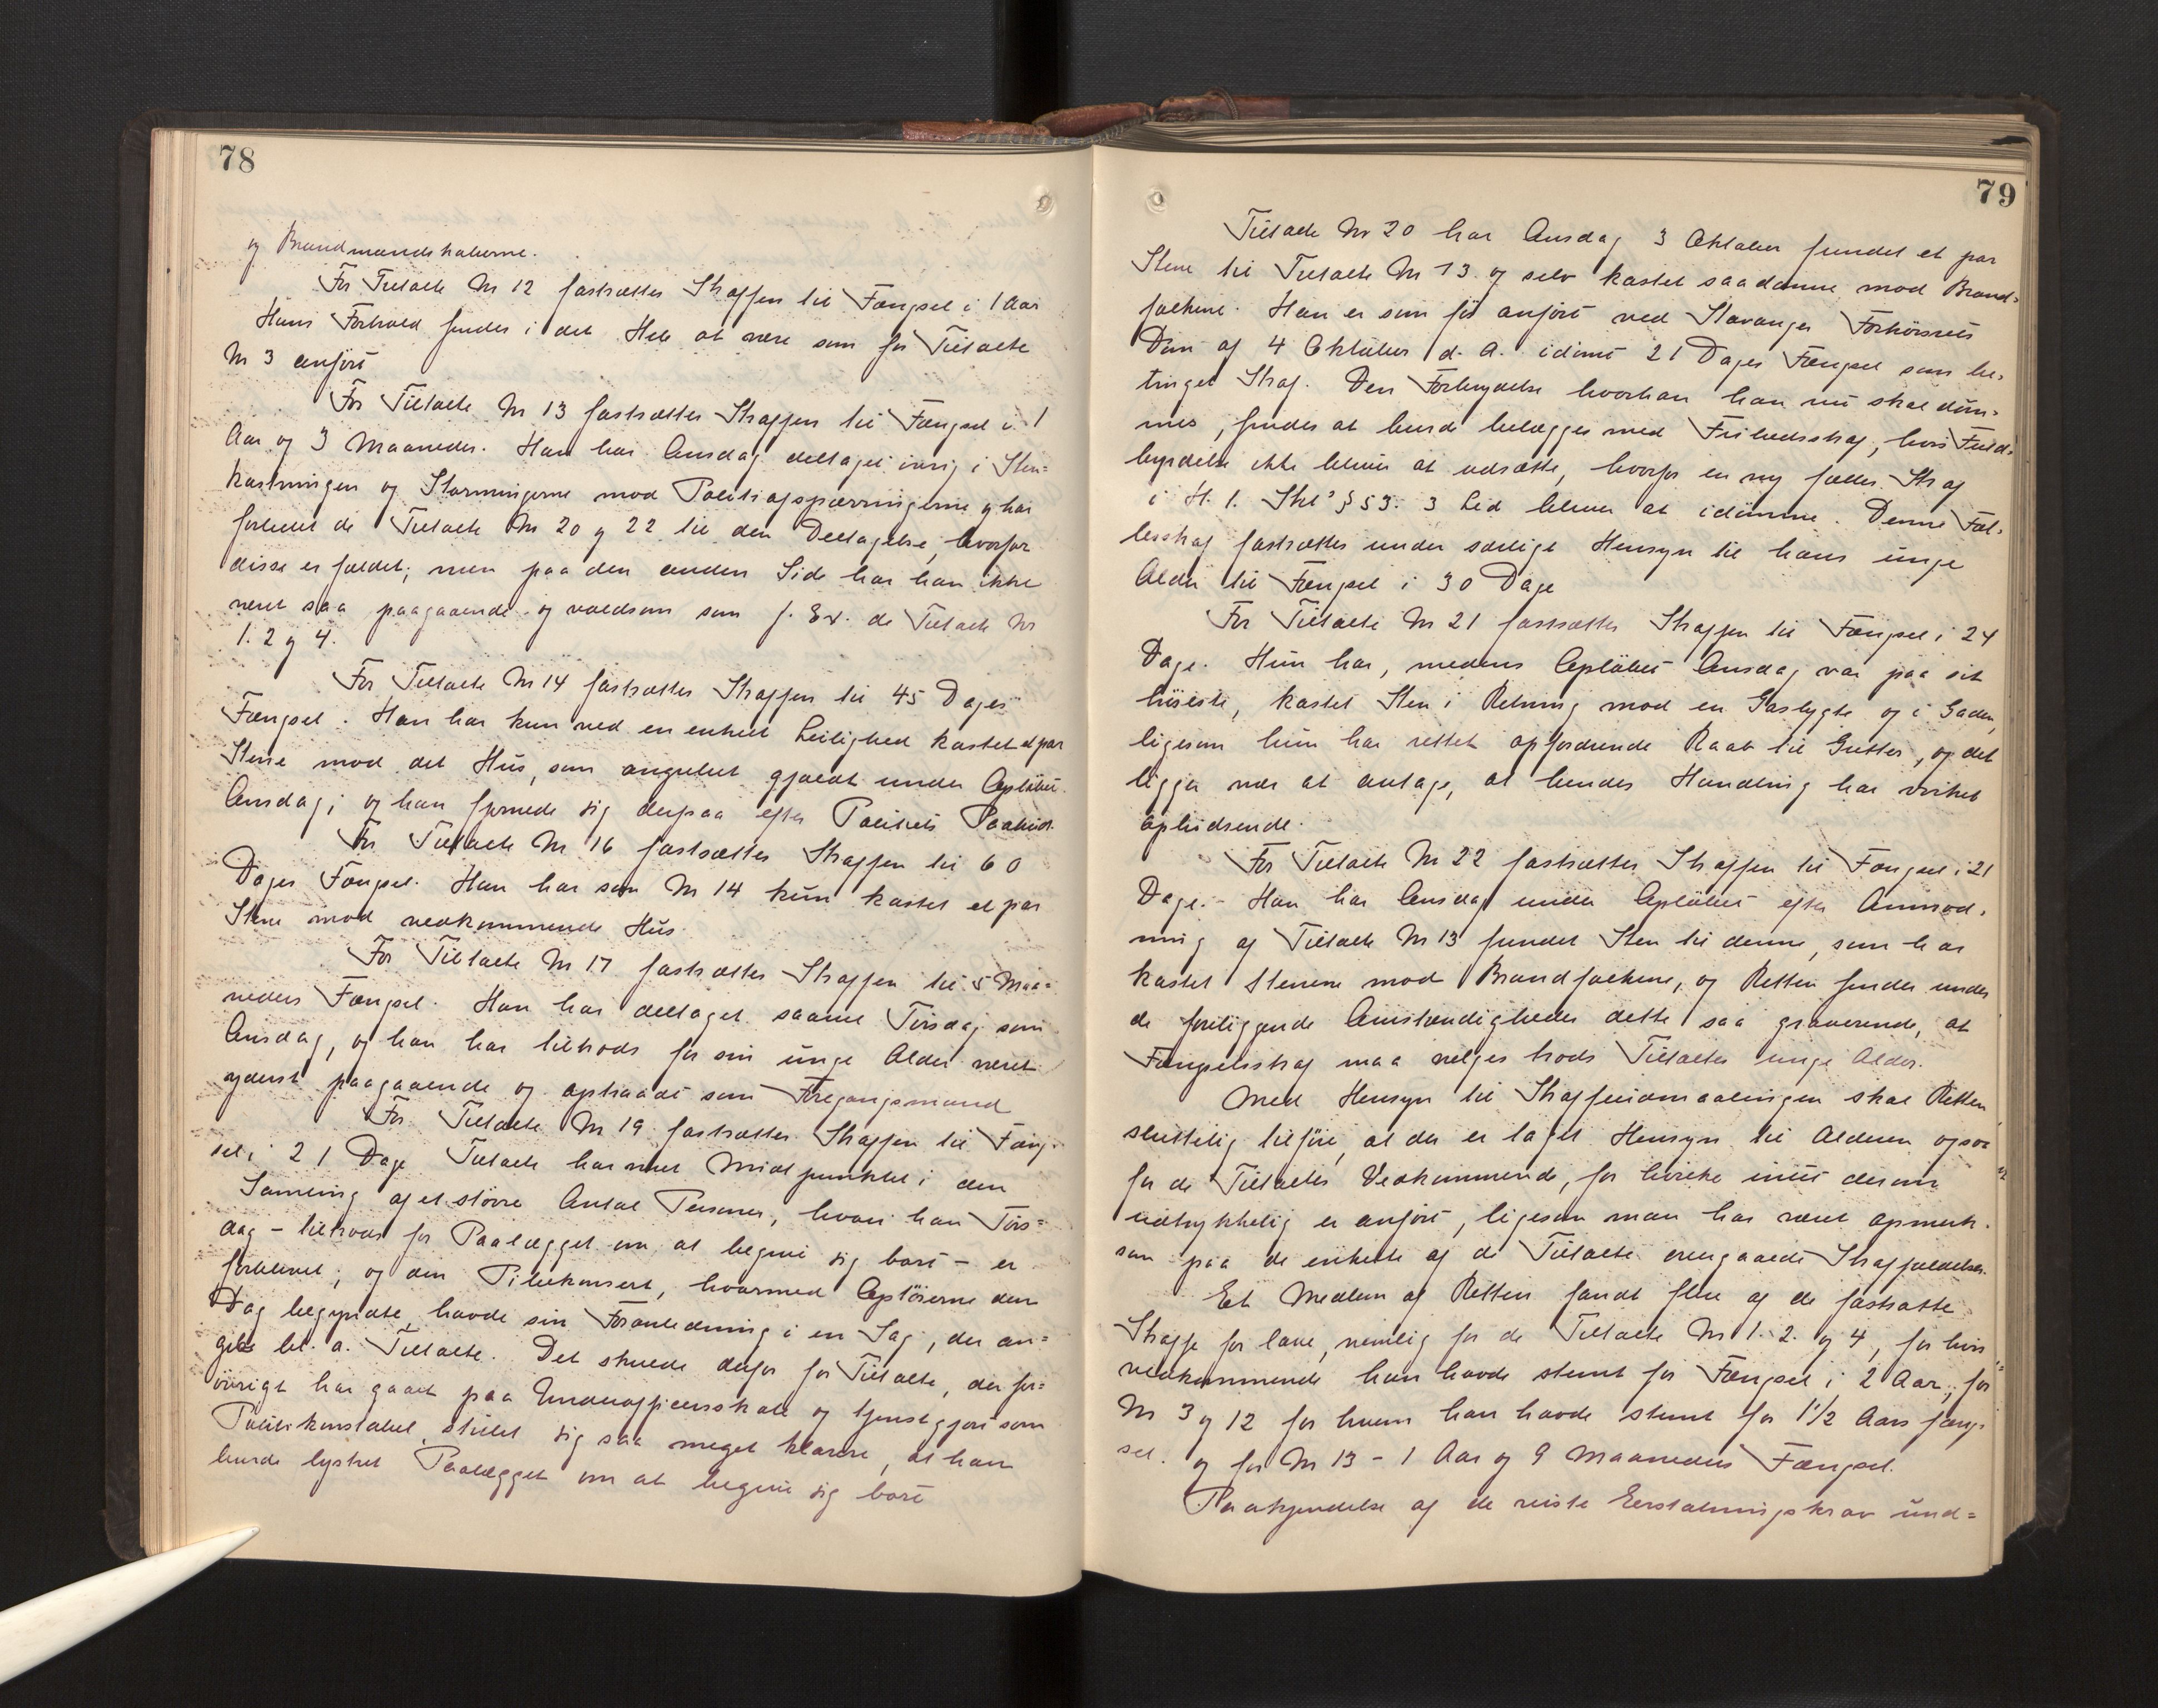 78
og Brandmandskaberne.
For Tiltalte Nr 12 fastsættes Straffen til Fængsel i 1 Aar
Hans Forhold findes i det Hele at være som for Tiltalte
Nr 3 anført
For Tiltalte Nr 13 fastsættes Straffen til Fængsel i 1
Aar og 3 Maaneder. Han har Onsdag deltaget ivrig i Sten=
kastningen og Stormningerne mod Politiafspærringerne og har
forledet de Tiltalte Nr 20 og 22 til den Deltagelse, hvorfor
disse er fældet; men paa den anden Side har han ikke
været saa paagaaende og voldsom som f. Ex. de Tiltalte Nr
1. 2 og 4.
For Tiltalte Nr 14 fastsættes Straffen til 45 Dages
Fængsel. Han har kun ved en enkelt Leilighed kastet et par
Stene mod det Hus, som angrebet gjaldt under Opløbet
Onsdag; og han fjernede sig derpaa efter Politiets Paabud.
For Tiltalte Nr 16 fastsættes Straffen til 60
Dages Fængsel. Han har som Nr 14 kun kastet et par
Stene mod vedkommende Hus.
For Tiltalte Nr 17 fastsættes Straffen til 5 Maa=
neders Fængsel. Han har deltaget saavel Tirsdag som
Onsdag, og han har tiltrods for sin unge Alder været
yderst paagaaende og optraadt som Foregangsmand
For Tiltalte Nr 19 fastsættes Straffen til Fæng-
sel i 21 Dage. Tiltalte har været Midtpunktet i den
Samling af et større Antal Personer, hvori han Tirs=
dag - tiltrods for Paalægget om at begive sig bort - er
forblevet; og den Pibekonsert, hvormed Optøierne den
Dag begyndte, havde sin Foranledning i en Sag, der an=
gik bl. a. Tiltalte. Det skulde derfor for Tiltalte, der for=
øvrigt har gaaet paa Underofficersskole og tjenstgjort som
Politikonstabel, stillet sig saa meget klarere, at han
burde lystret Paalægget om at begive sig bort
79
Tiltalte Nr 20 har Onsdag 3 Oktober fundet et par
Stene til Tiltalte Nr 13 og selv kastet saadanne mod Brand=
folkene. Han er som før anført ved Stavanger Forhørsrets
Dom af 4 Oktober d. A. idømt 21 Dages Fængsel som be-
tinget Straf. Den Forbrydelse hvorfor han nu skal døm=
mes, findes at burde belægges med Frihedsstraf, hvis Fuld-
byrdelse ikke bliver at udsætte, hvorfor en ny fælles Straf
i H. t. Strl's § 53. 3 Led bliver at idømme. Denne Fæl-
lesstraf fastsættes under særligt Hensyn til hans unge
Alder til Fængsel i 30 Dage
For Tiltalte Nr 21 fastsættes Straffen til Fængsel i 24
Dage. Hun har, medens Opløbet Onsdag var paa sit
høieste, kastet Sten i Retning mod en Gaslygte og i Gaden,
ligesom hun har rettet opfordrende Raab til Gutter, og det
ligger nær at antage, at hendes Handling har virket
ophidsende.
For Tiltalte Nr 22 fastsættes Straffen til Fængsel i 21
Dage. - Han har Onsdag under Opløbet efter Anmod-
ning af Tiltalte Nr 13 fundet Sten til denne, som har
kastet Stenene mod Brandfolkene, og Retten finder under
de foreliggende Omstændigheder dette saa graverende, at
Fængselsstraf maa vælges trods Tiltaltes unge Alder.
Med Hensyn til Straffeudmaalingen skal Retten
sluttelig tilføie, at der er taget Hensyn til Alderen ogsaa
for de Tiltaltes Vedkommende, for hvilke intet derom
udtrykkelig er anført, ligesom man har været opmerk-
som paa de enkelte af de Tiltalte overgaaede Straffældelser.
Et Medlem af Retten fandt flere af de fastsatte
Straffe for lave, nemlig for de Tiltalte Nr 1. 2. og 4, for hvis
vedkommende han havde stemt for Fængsel i 2 Aar; for
Nr 3 og 12 for hvem han havde stemt for 1½ Aars fæng-
sel. og for Nr 13 - 1 Aar og 9 Maaneders Fængsel.
Paakjendelse af de reiste Erstatningskrav und=